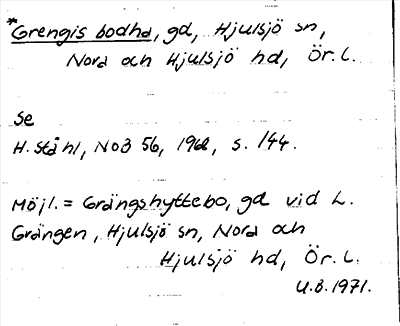 *Grengis bodha, gd, Hjulsjö sn,
Nora och Hjulsjö hd, Ör. L.
Se
H. Ståhl, NoB 56, 1968, s. 144.
Möjl. = Grängshyttebo, gd vid L.
Grängen, Hjulsjö sn, Nora och
Hjulsjö hd, Ör. L.
U.B. 1971.